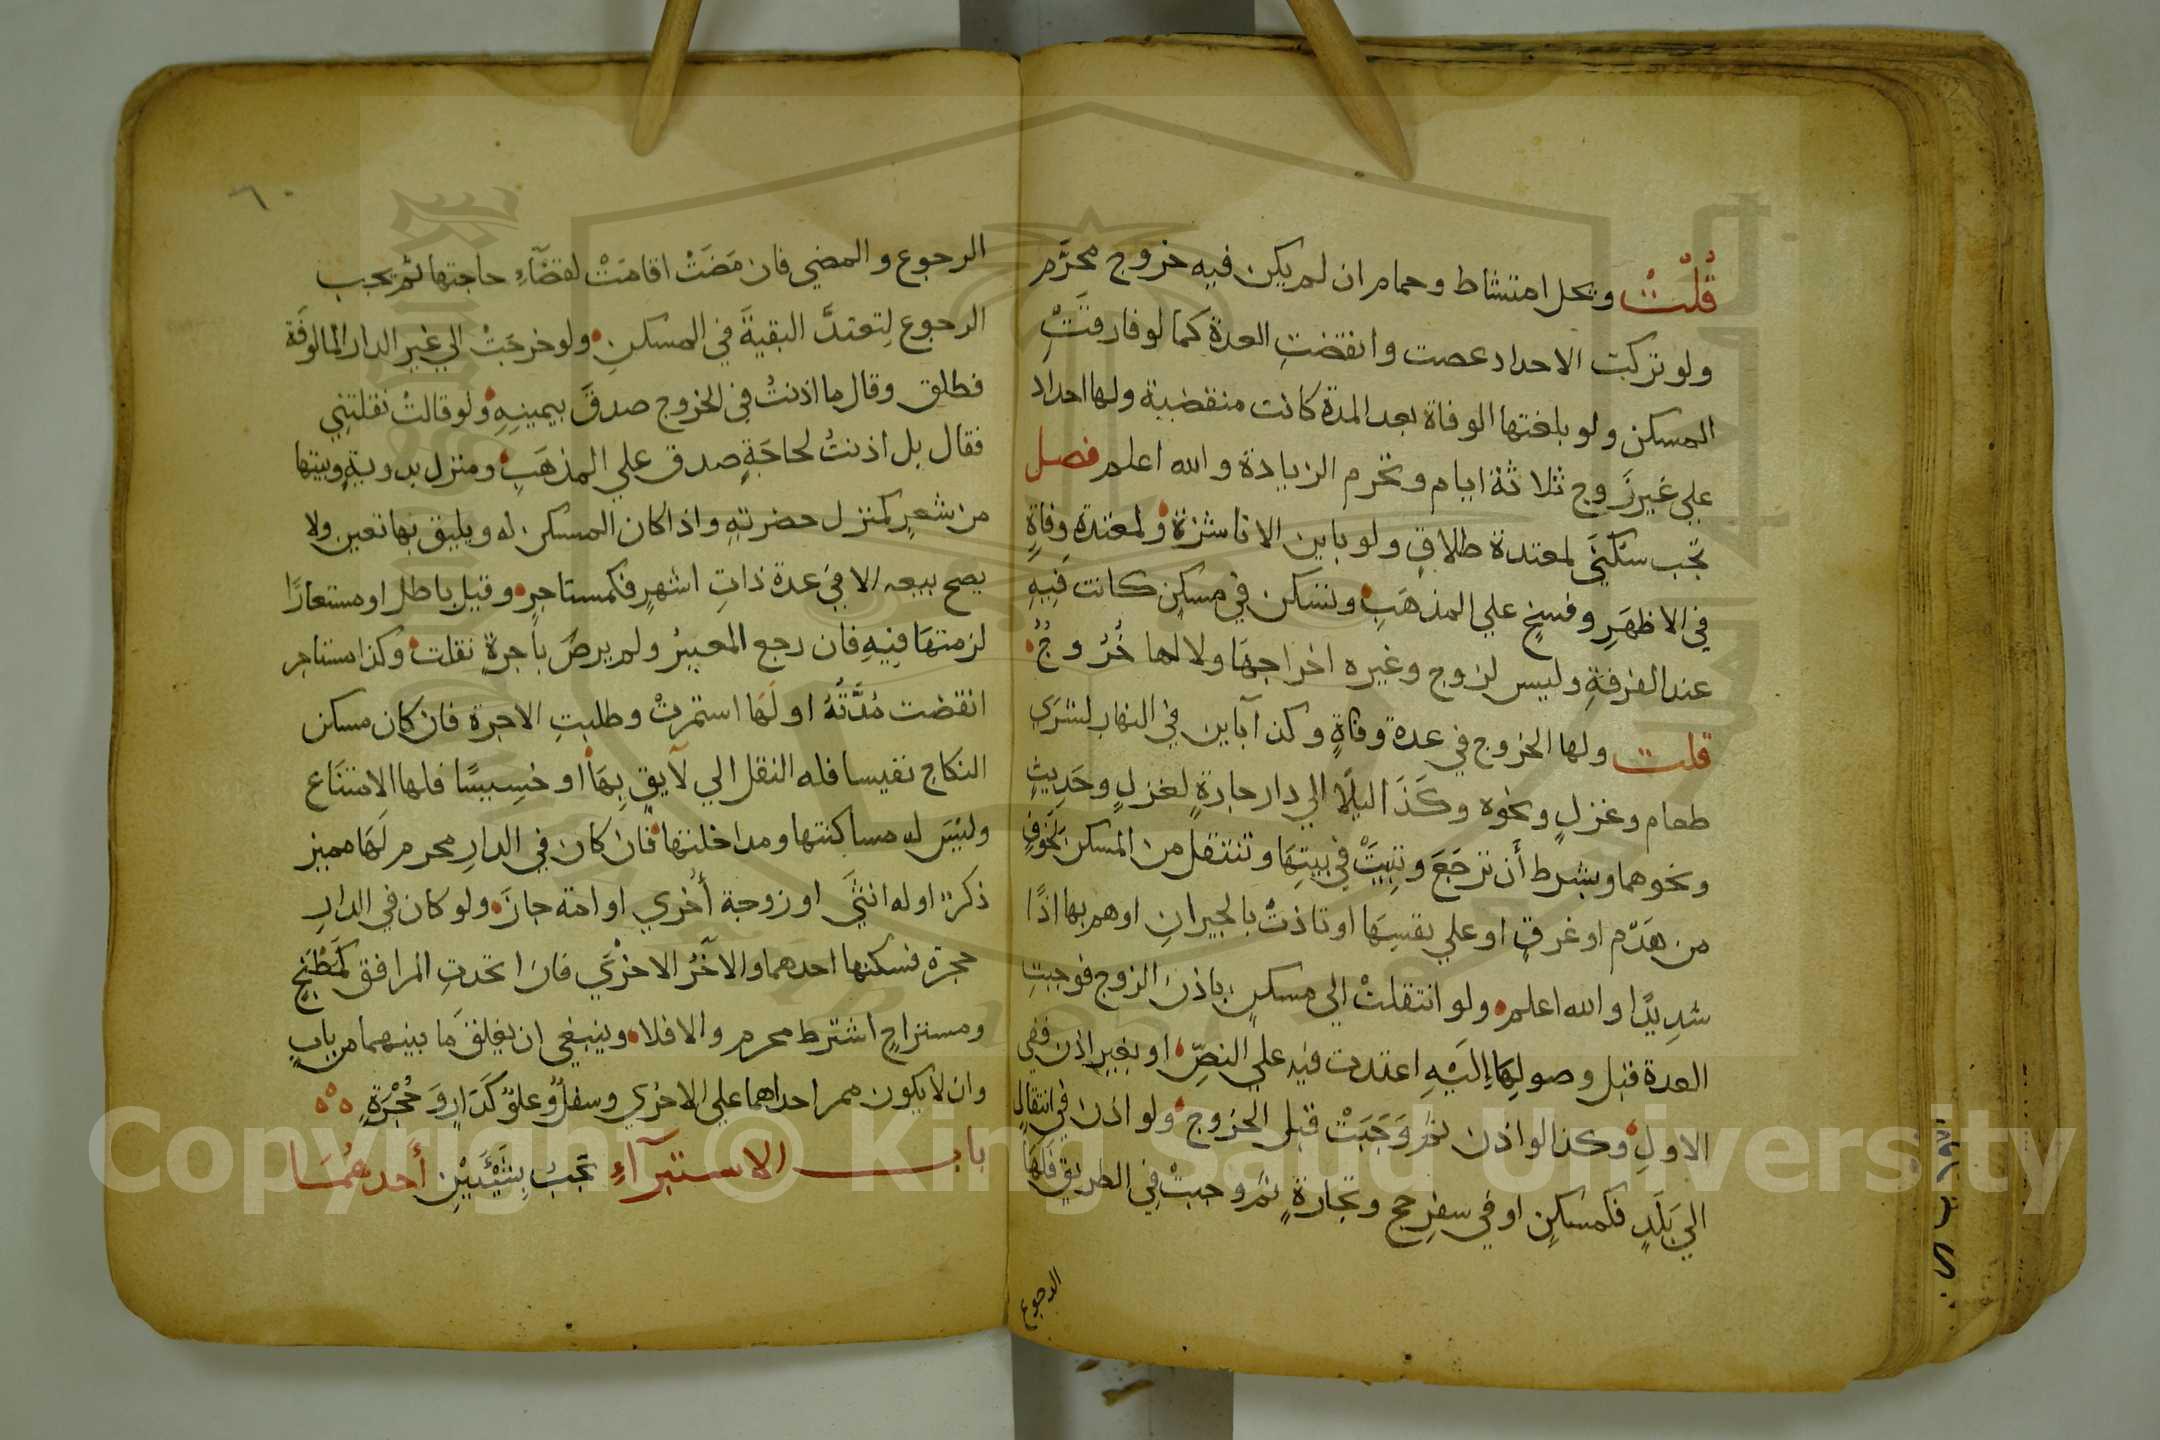 قُلْتُ ويحل امتشاط وحمام ان لم يكن فيه خروج محرَّم
ولو تركت الاحداد عصت وانقضتِ العدة كما لو فارقتِ
المسكن ولو بلغتها الوفاة بعد المدة كانت منقضية ولها احداد
علي غير زَوج ثلاثة ايام وتحرم الزيادة والله اعلم فصل
تجب سكنَي لمعتدة طلاقٍ ولو باين الا ناشزة ولمعتدةِ وفاةٍ
في الاظهَرِ وفسخٍ علي المذهَبِ وتسكن في مسكنٍ كانت فِيهِ
عند الفرقةِ وليس لزوج وغيره اخراجهَا ولا لها خُرُوجٌ
قلت ولها الخروج في عدة وفاةٍ وكذا بَاين في النهار لشرَي
طعام وغزلٍ ونحوه وكَذَا ليلًا الي دار جارةٍ لغزلٍ وحَدِيثٍ
ونحوهما وبشرط أَن ترجَعَ وتبِيتَ في بيتِهَا وتنتقل من المسكن لخَوفٍ
من هَدْم او غرقٍ او علي نفسِهَا او تاذتْ بالجيرانِ او هم بها اذًا
شدِيدًا والله اعلم ولو انتقلتْ الي مسكنٍ باذن الزوج فوجبتِ
العدة قبل وصولِهَا إليْهِ اعتدت فيه علي النصِّ او بغير اذن ففي
الاولِ وكذا لو اذن ثم وَجَبَتْ قبل الخروج ولو اذن في انتقالٍ
الي بَلَدٍ فكمسكنٍ او في سفرِ حج وتجارةٍ ثم وجبتْ في الطريق فَلَهَا
الرجوع
٦٠
الرجوع والمضي فان مَضَتْ اقامَتْ لقضَآءِ حاجتها ثم يجب
الرجوع لِتعتدَّ البقيةَ في المسكنِ ولو خرجَتْ الي غير الدار المالوفَة
فطلق وقال ما اذنتُ في الخروج صدقَ بيمينِهِ ولو قالتْ نقلتنِي
فقال بل اذنتُ لحاجَةٍ صدق علي المذهَبِ ومنزل بدويةٍ وبيتها
من شعرٍ كمنزل حضرتهِ واذا كان المسكن له ويليق بها تعين ولا
يصح بيعه الا في عدة ذاتِ اشهرٍ فكمستاجرٍ وقيل باطل او مستعارًا
لزمتهَا فِيهِ فان رجع المعيرُ ولم يرضَ باجرةٍ نقلت وكذا مستاجر
انقضت مُدَّتُهُ او لَهَا استمرتْ وطلبتِ الاجرة فان كان مسكن
النكاح نفيسا فله النقل الي لآيقٍ بِهَا او خسِيسًا فلها الامتنَاع
وليسَ له مساكنتها ومداخلتها فان كان في الدارِ محرم لَهَا مميز
ذكر او له انثَي او زوجة أُخري او امة جازَ ولو كان في الدارِ
حجرة فسكنها احدهما والآخَرُ الاخرَي فان اتحدتِ المرافق كمَطْبخٍ
ومستراحٍ اشترط محرم والا فلا وينبغي ان يغلقَ مَا بينهما من بابٍ
وان لا يكون ممر احداهما علي الاخري وسفلٌ وعلوٌ كَدَارٍ وَحُجْرَةٍ
باب الاستبرآءِ تجبُ بِسَبَبَيْنِ أحدهُمَا